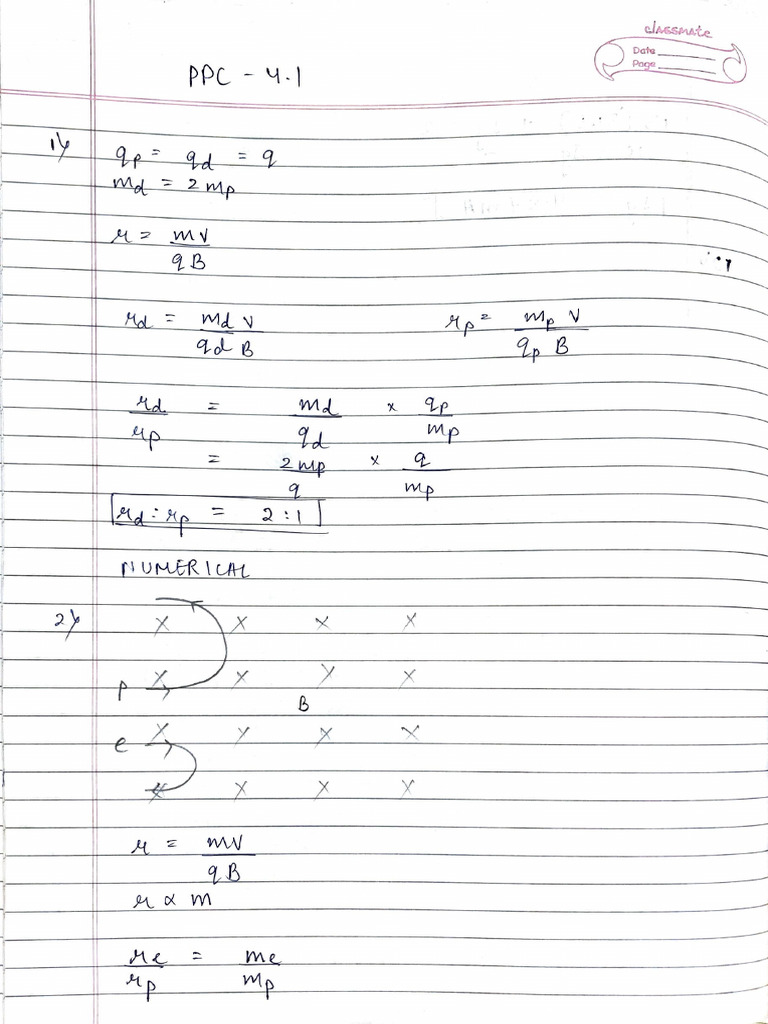 classmate
Date
Page
PPC - 4.1
1) qp = qd = q
md = 2mp
r = mv / qB
rd = md v / qd B    rp = mp v / qp B
rd / rp = md / qd × qp / mp
= 2mp / q × q / mp
rd : rp = 2 : 1
NUMERICAL
2) X X X X
p X X X X
B
e X X X X
X X X X
r = mv / qB
r ∝ m
re / rp = me / mp